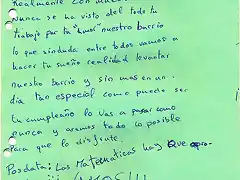 Realmente con
Nunca se ha visto del todo tu
trabajo por tu "humo" nuestro barrio
lo que sin duda entre todos vamos a
hacer tu sueño realidad levantar
nuestro barrio y sin mas en un
día tan especial como puede ser
tu cumpleaños lo vas a pasar como
nunca y aremos todo lo posible
para que lo disfrute.
Posdata: Las Matematicas hay que apro-